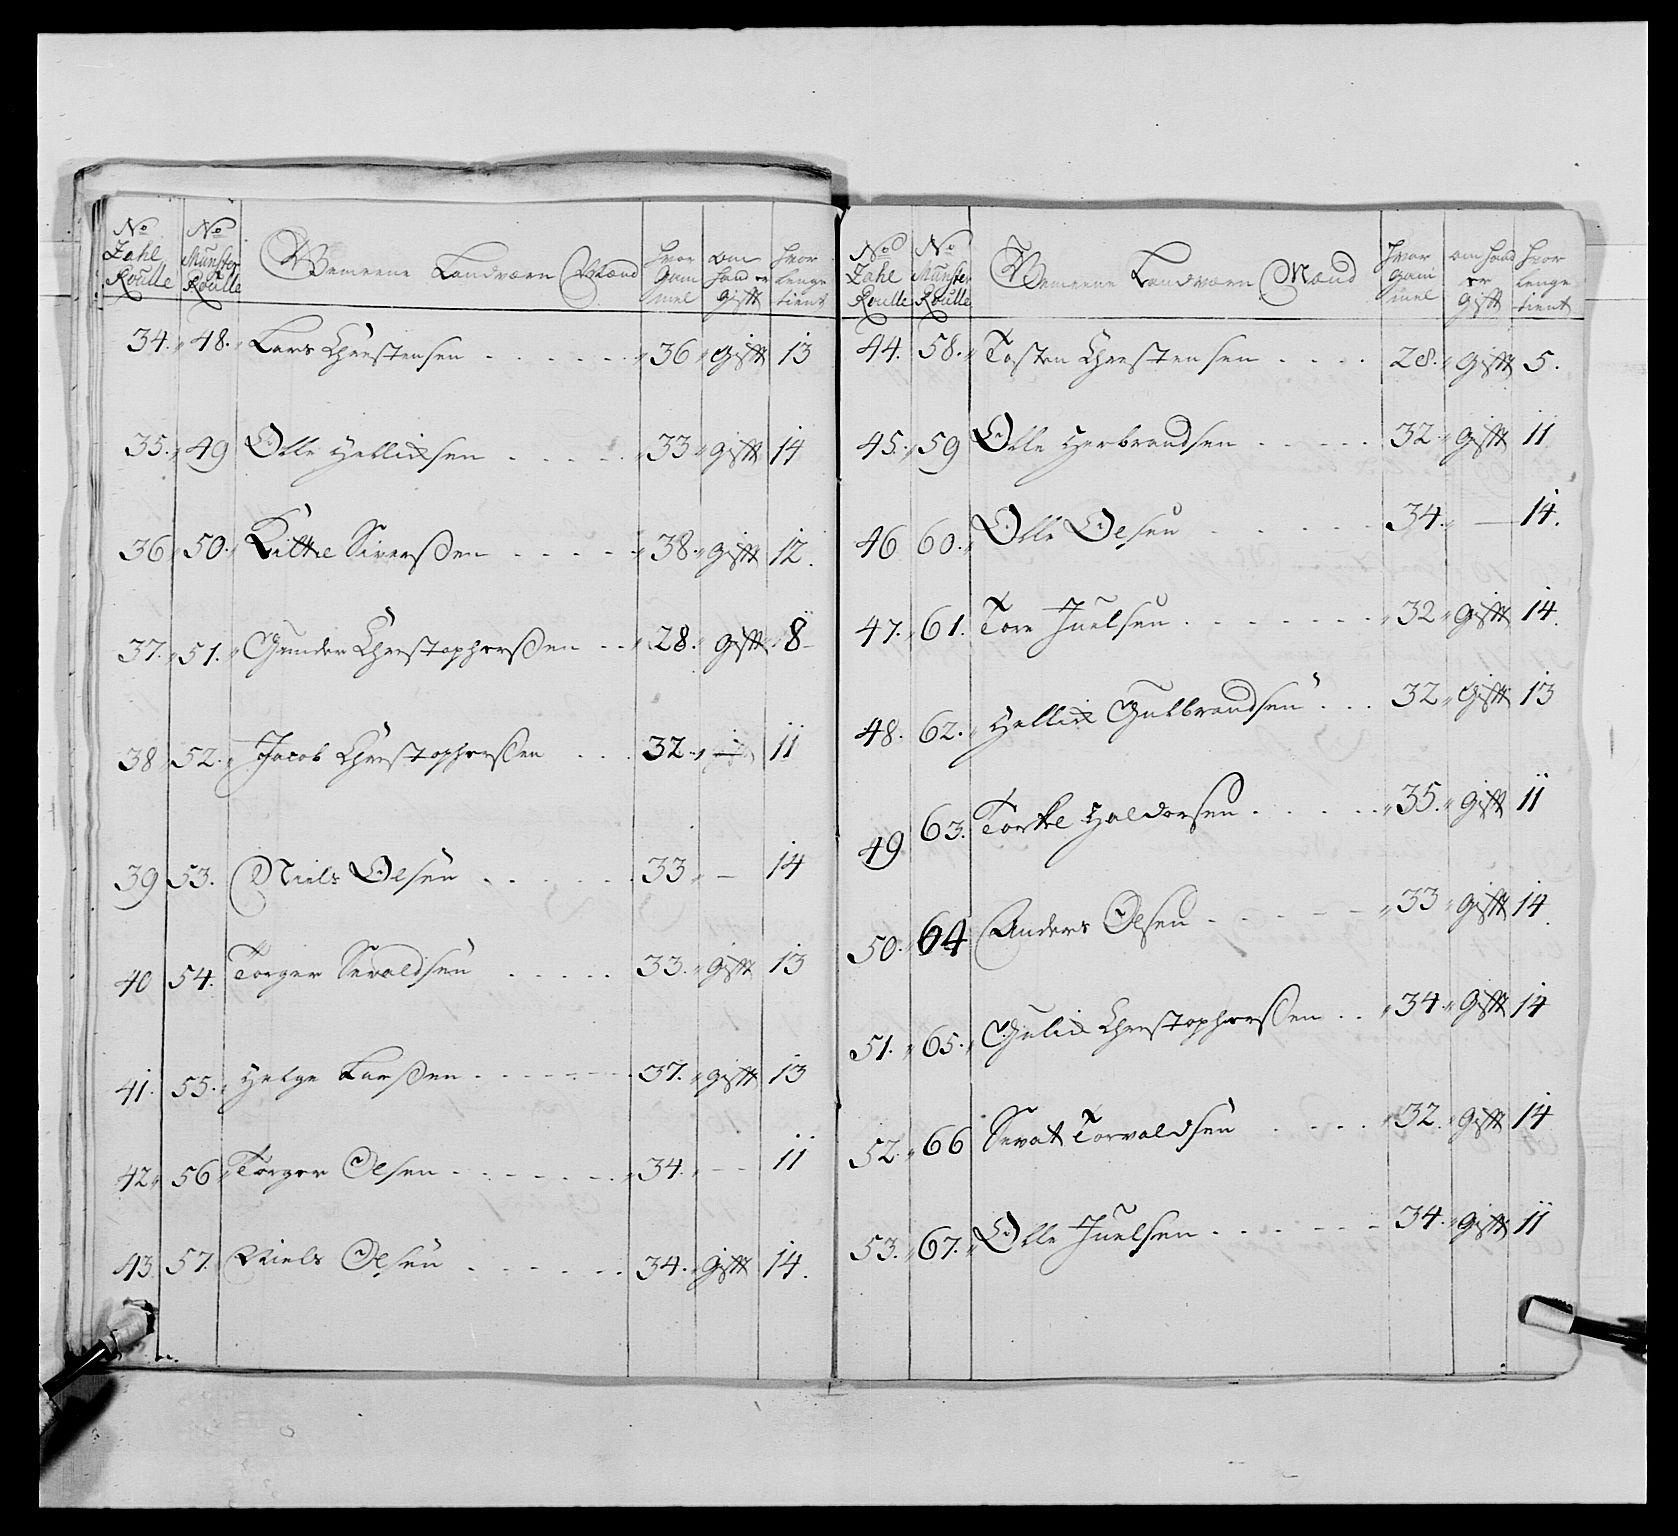 No Zahl Roulle | No Munster Roulle | Gemeene Landværn Mænd | hvor Gam mel | om hand er gifft | hvor lenge tient
34. 48. Lars Christensen 36 gifft 13
35. 49 Olle Hellichsen 33 gifft 14
36 50. Kittle Sivershen 38. gifft 12.
37. 51. Gunder Christophershen 28. gifft 8
38 52. Jacob Christophershen 32. — 11
39 53. Niels Olsen 33 — 14
40 54. Torger Sevaldsen 33. gifft 13
41. 55. Helge Larshen 37. gifft 13
42 56 Torger Olsen 34. — 11
43. 57. Niels Olsen 34. gifft 14.
No Zahl Roulle | No Munster Roulle | Gemeene Landværn Mænd | hvor gam mel | om hand er gifft | hvor lenge tient
44. 58. Tosten Christensen 28. gifft 5.
45. 59 Olle Herbrandsen 32 gifft 11
46 60. Olle Olsen 34. — 14.
47. 61. Tore Juelsen 32 gifft 14.
48. 62. Hellich Gulbrandsen 32 gifft 13
49 63. Torkel Haldorsen 35. gifft 11
50. 64 Anders Olsen 33 gifft 14.
51. 65. Gulich Christophershen 34. gifft 14
52. 66 Sevat Torvaldsen 32. gifft 14
53. 67. Olle Juelsen 34. gifft 11